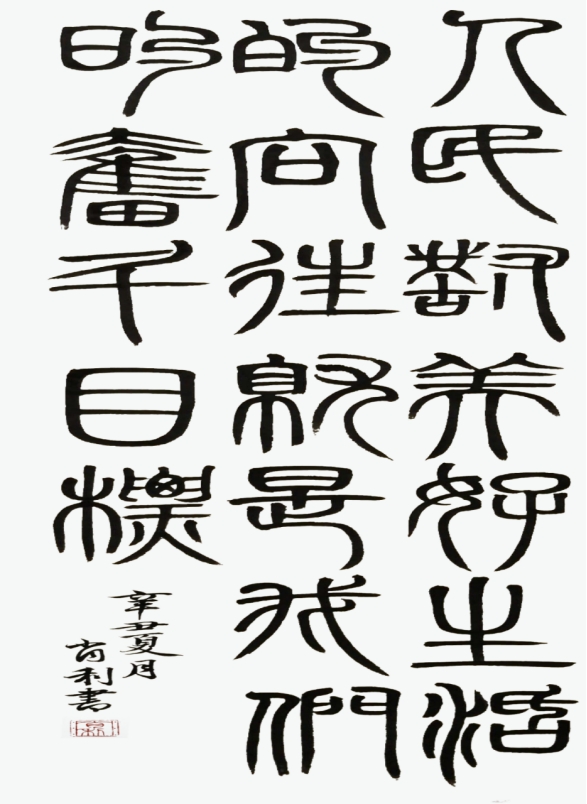 人民對美好生活
的向往就是我們
的奮斗目標
辛丑夏月
利書